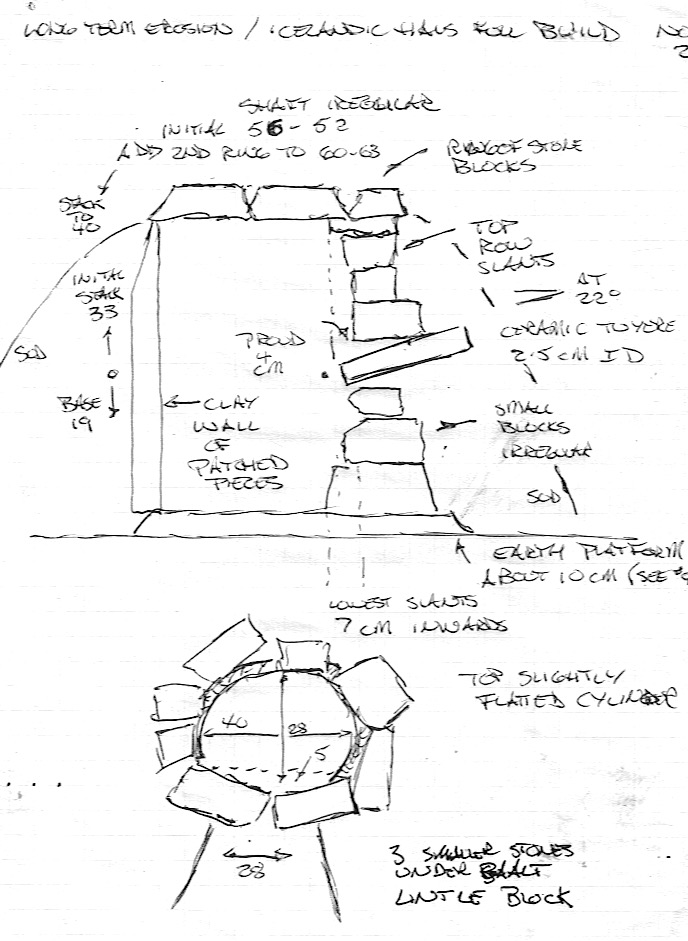 LONG TERM EROSION / ICELANDIC HALS FULL BUILD NO
2
SHAFT IRREGULAR
INITIAL 56 - 52
ADD 2ND RING TO 60-63
RING OF STONE
BLOCKS
STACK
TO
40
TOP
ROW
SLANTS
INITAL
STACK
33
AT
22°
PROUD
4
CM
CERAMIC TUYERE
2.5 CM ID
SOD
BASE
19
CLAY
WALL
OF
PATCHED
PIECES
SMALL
BLOCKS
IRREGULAR
SOD
EARTH PLATFORM
ABOUT 10 CM (SEE
LOWEST SLANTS
7 CM INWARDS
TOP SLIGHTLY
FLATTED CYLINDER
40
28
5
28
3 SMALLER STONES
UNDER
LINTLE BLOCK